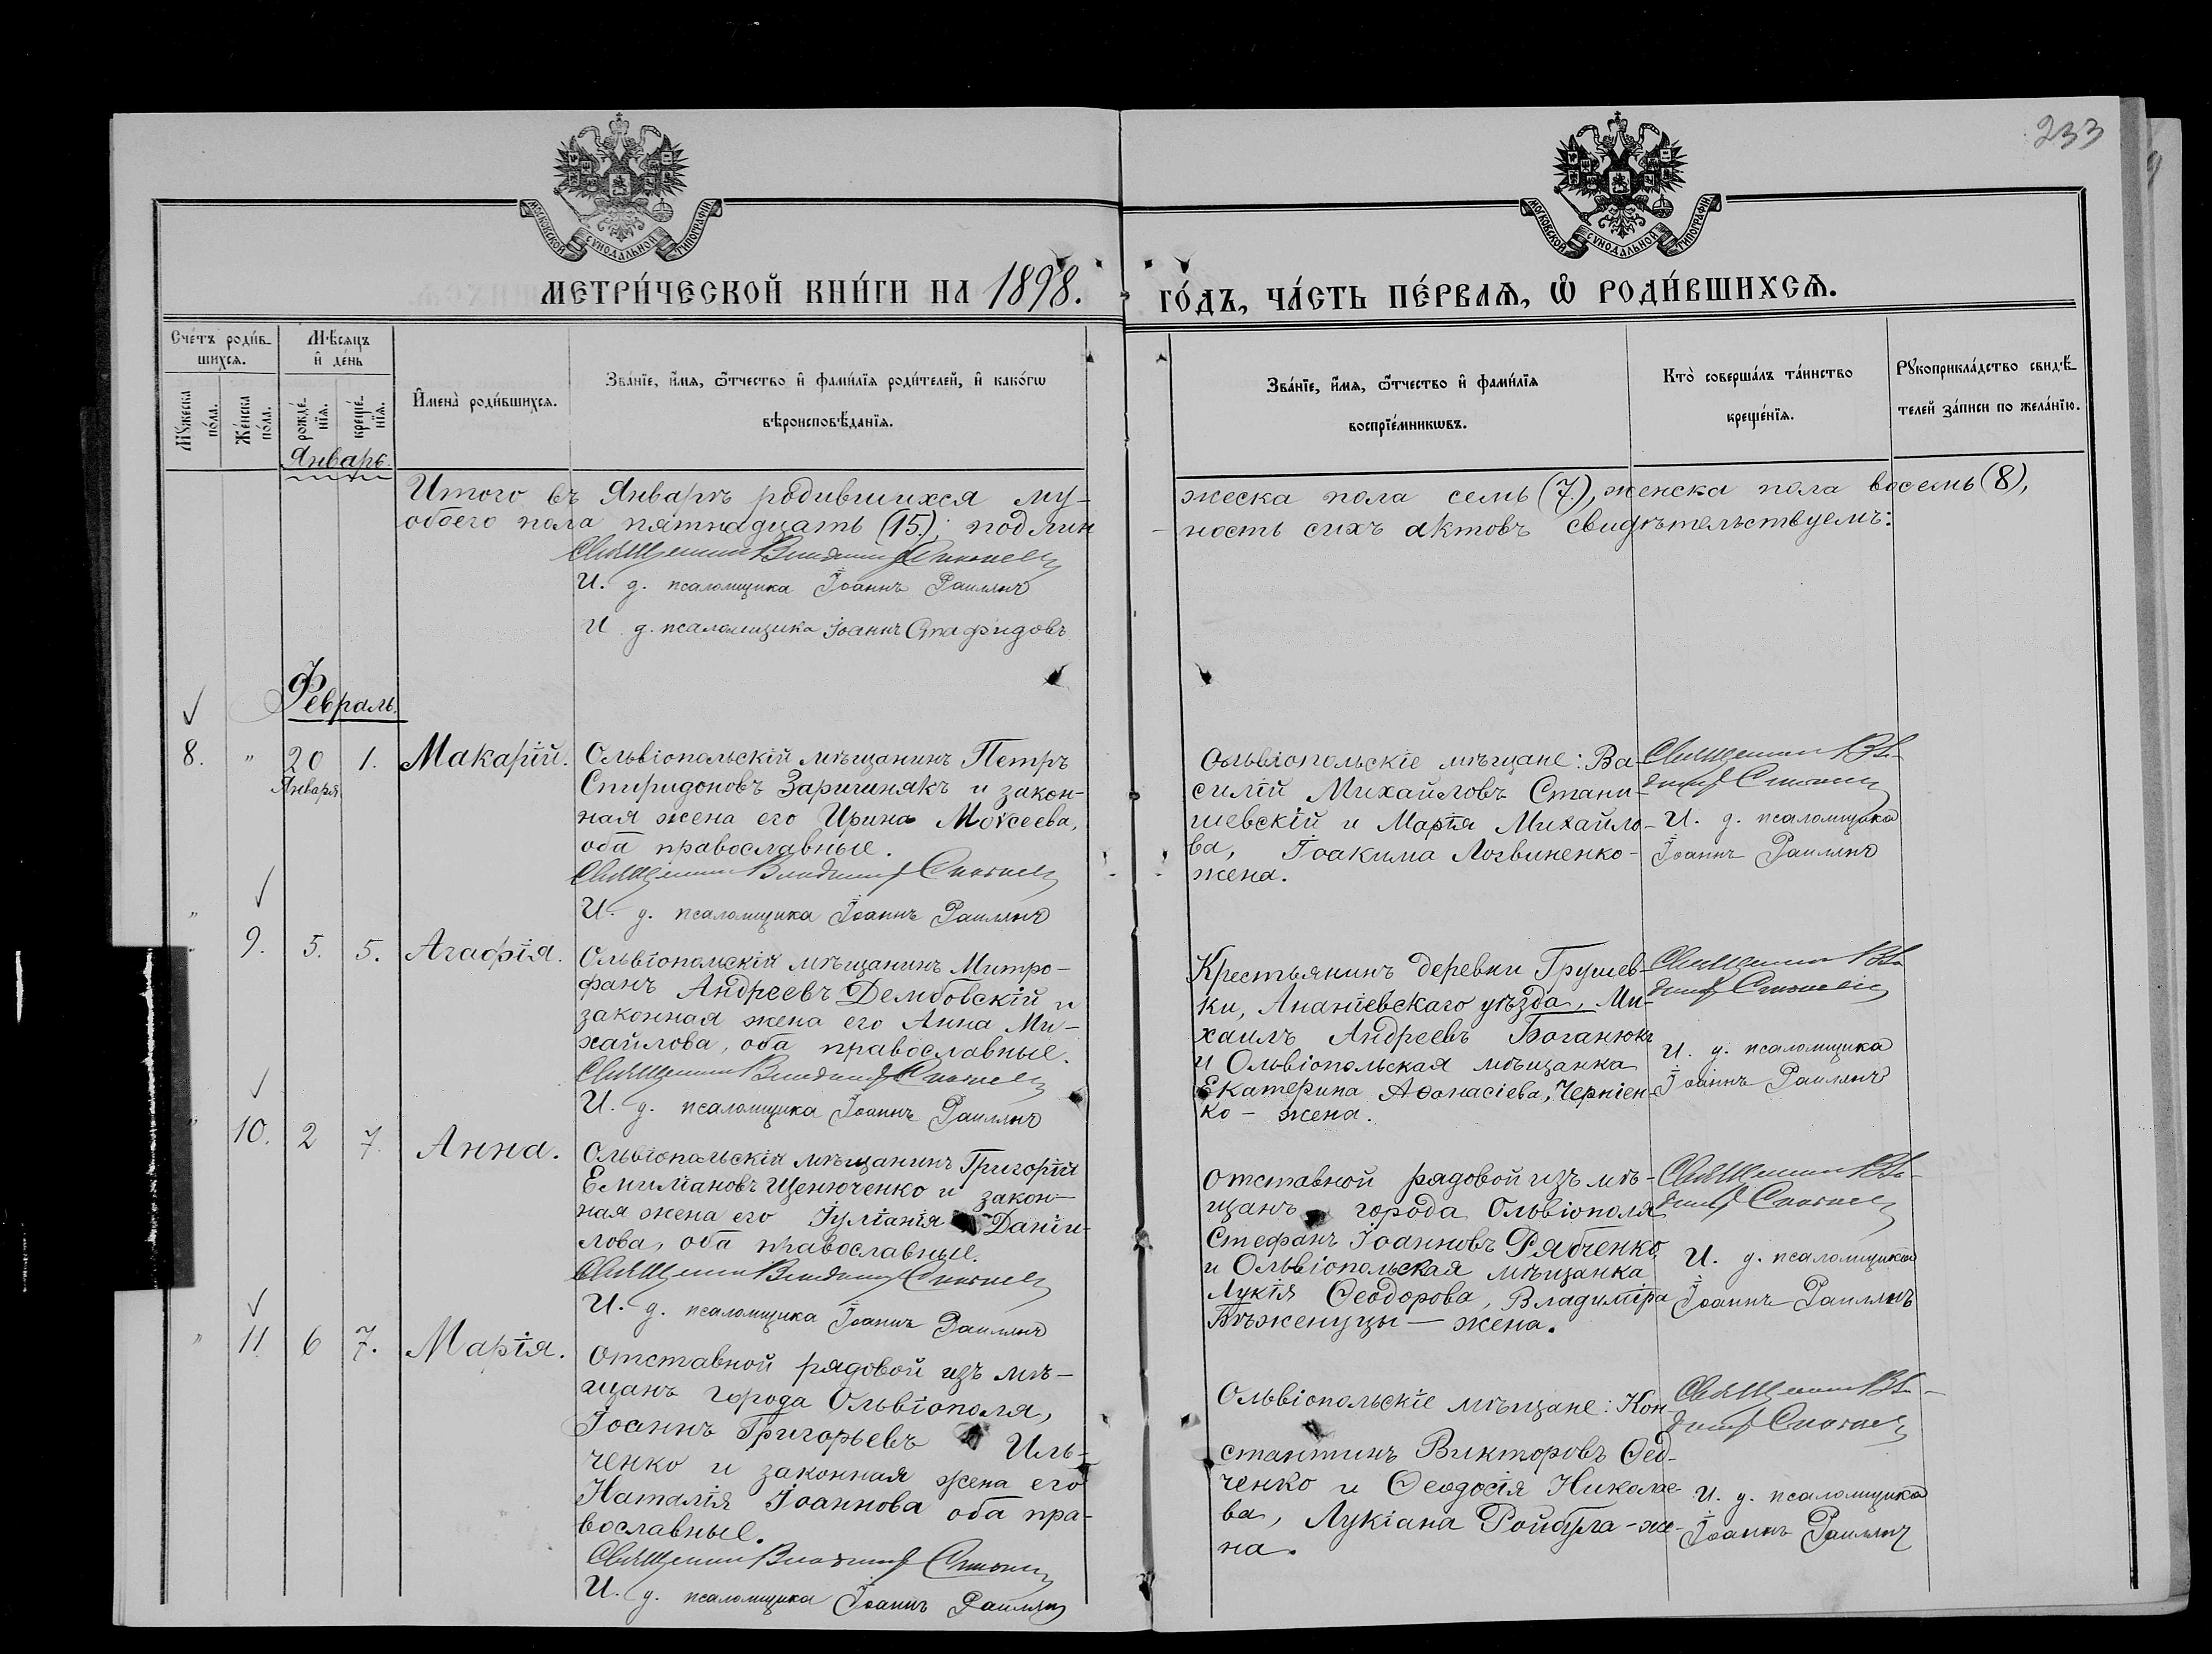 233
МОСКОВСКОЙ СѴНОДАЛЬНОЙ ТИПОГРАФІИ
МОСКОВСКОЙ СѴНОДАЛЬНОЙ ТИПОГРАФІИ
МЕТРИ́ЧЕСКОЙ КНИ́ГИ НА 1898. ГО́ДЪ, ЧА́СТЬ ПЕ́РВАѦ, Ѡ҆ РОДИ́ВШИХСѦ.
Сче́тъ роди́в-
шихсѧ.
Мꙋжеска
по́ла.
Же́нска
по́ла.
Мѣ́сѧцъ
и҆ де́нь
рожде́-
нїѧ.
креще́-
нїѧ.
И҆мена̀ роди́вшихсѧ.
Зва́нїе, и҆́мѧ, ѻ҆́тчество и҆ фами́лїѧ роди́телей, и҆ како́гѡ
вѣроисповѣ́данїѧ.
Зва́нїе, и҆́мѧ, ѻ҆́тчество и҆ фами́лїѧ
воспрїе́мникѡвъ.
Кто̀ соверша́лъ та́инство
креще́нїѧ.
Рꙋкоприкла́дство свидѣ́-
телей за́писи по жела́нїю.
Январь.
Итого въ Январѣ родившихся му-
жеска пола семь (7.), женска пола восемь (8),
обоего пола пятнадцать (15.); подлин
-ность сихъ актовъ свидѣтельствуемъ:
Священникъ Владимиръ
И. д. псаломщика Іоаннъ
И д. псаломщика Іоаннъ Стафидовъ
Февраль.
8. " 20 1. Макарій.
Января
Ольвіопольскій мѣщанинъ Петръ
Спиридоновъ Заричинякъ и закон-
ная жена его Ирина Моѵсеева,
оба православные.
Священникъ Владимиръ
И. д. псаломщика Іоаннъ
Ольвіопольскіе мѣщане: Ва-
силій Михайловъ Стани-
шевскій и Марія Михайло-
ва, Іоакима Логвиненко-
жена.
Священникъ Вла-
димиръ
И. д. псаломщика
Іоаннъ
" 9. 5. 5. Агафія.
Ольвіопольскій мѣщанинъ Митро-
фанъ Андреевъ Дембовскій и
законная жена его Анна Ми-
хайлова, оба православные.
Священникъ Владимиръ
И. д. псаломщика Іоаннъ
Крестьянинъ деревни Грушев-
ки, Ананіевскаго уѣзда, Ми-
хаилъ Андреевъ Боганюкъ
и Ольвіопольская мѣщанка
Екатерина Аѳанасіева, Черніен-
ко - жена.
Священникъ Вла-
димиръ
И. д. псаломщика
Іоаннъ
" 10. 2 7. Анна.
Ольвіопольскій мѣщанинъ Григорій
Емиліановъ Щенюченко и закон-
ная жена его Іуліанія Даніи-
лова, оба православные.
Священникъ Владимиръ
И. д. псаломщика Іоаннъ
Отставной рядовой изъ мѣ-
щанъ города Ольвіополя
Стефанъ Іоанновъ Рябченко
и Ольвіопольская мѣщанка
Лукія Ѳеодорова, Владиміра
Бѣженуцы - жена.
Священникъ Вла-
димиръ
И. д. псаломщика
Іоаннъ
" 11 6 7. Марія.
Отставной рядовой изъ мѣ-
щанъ города Ольвіополя,
Іоаннъ Григорьевъ Иль-
ченко и законная жена его
Наталія Іоаннова оба пра-
вославные.
Священникъ Владимиръ
И. д. псаломщика Іоаннъ
Ольвіопольскіе мѣщане: Кон-
стантинъ Викторовъ Ѳед-
ченко и Ѳеодосія Николае-
ва, Лукіана Ройбула - же-
на.
Священникъ Вла-
димиръ
И. д. псаломщика
Іоаннъ